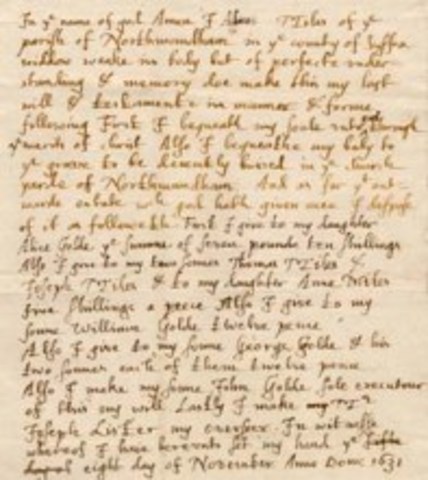 In yᵉ name of god Amen I Alice Tiler of yᵉ
parish of Northwaldham in yᵉ county of Suffo
widdow weake in body but of perfecte under
standing & memory doe make this my last
will & testamente in manner & forme
following First I bequeath my soule unto god through
yᵉ merits of christ Also I bequeathe my body to
yᵉ grave to be decently buried in yᵉ church
yarde of Northwaldham And as for yᵉ out-
warde estate wch god hath given mee I dispose
of it as followethe First I give to my daughter
Alice Golde yᵉ summe of seven pounds ten shillings
Also I give to my two sonnes Thomas &
Joseph & to my daughter Anne
five shillings a peece Also I give to my
sonne William Golde twelve pence
Also I give to my sonne George Golde & his
two sonnes eache of them twelve pence
Also I make my sonne John Golde sole executour
of this my will Lastly I make my Mʳ
Joseph Lister my overseer In witnesse
whereof I have hereunto set my hand yᵉ
eight day of November Anno Dom: 1631